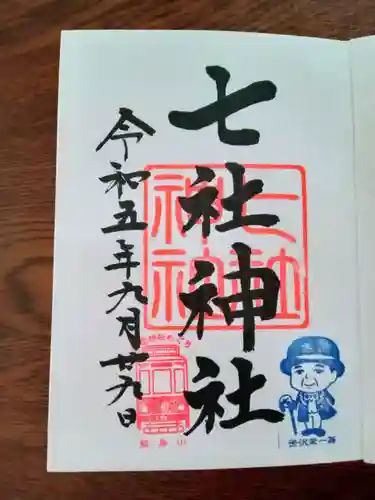 七社神社
令和五年九月廿九日
七社神社
飛鳥山
渋沢栄一翁